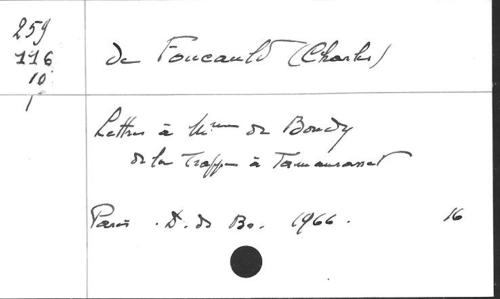 259
116
10
1
de Foucauld (Charles)
Lettres à Mme de Bondy
de la Trappe à Tamanrasset
Paris . D. de Br. 1966. 16